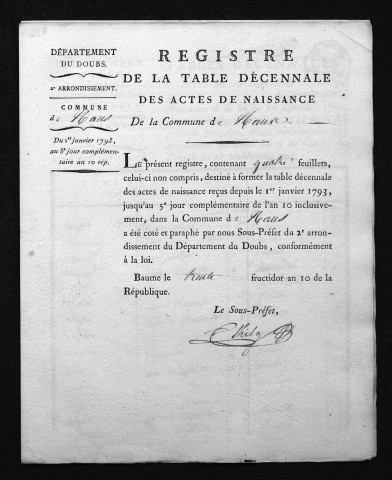 DÉPARTEMENT
DU DOUBS.
2e ARRONDISSEMENT.
COMMUNE
de Naus
Du 1er janvier 1793,
au 5e jour complémen-
taire an 10 rép.
REGISTRE
DE LA TABLE DÉCENNALE
DES ACTES DE NAISSANCE
De la Commune de
LE présent registre, contenant quatre feuillets,
celui-ci non compris, destiné à former la table décennale
des actes de naissance reçus depuis le 1er janvier 1793,
jusqu'au 5e jour complémentaire de l'an 10 inclusive-
ment, dans la Commune de Naus
a été coté et paraphé par nous Sous-Préfet du 2e arron-
dissement du Département du Doubs, conformément
à la loi.
Baume le trente fructidor an 10 de la
République.
Le Sous-Préfet,